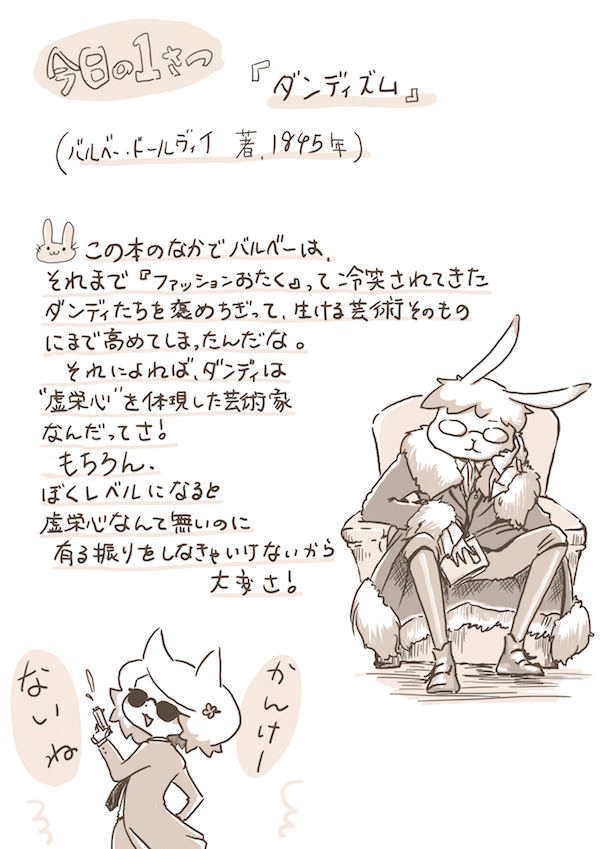 今日の1さつ
『ダンディズム』
(バルベー・ドールヴィイ 著、1845年)
この本のなかでバルベーは、
それまで『ファッションおたく』って冷笑されてきた
ダンディたちを褒めちぎって、生ける芸術そのもの
にまで高めてしまったんだな。
それによれば、ダンディは
"虚栄心"を体現した芸術家
なんだってさ!
もちろん、
ぼくレベルになると
虚栄心なんて無いのに
有る振りをしなきゃいけないから
大変さ!
かんけー
ないね